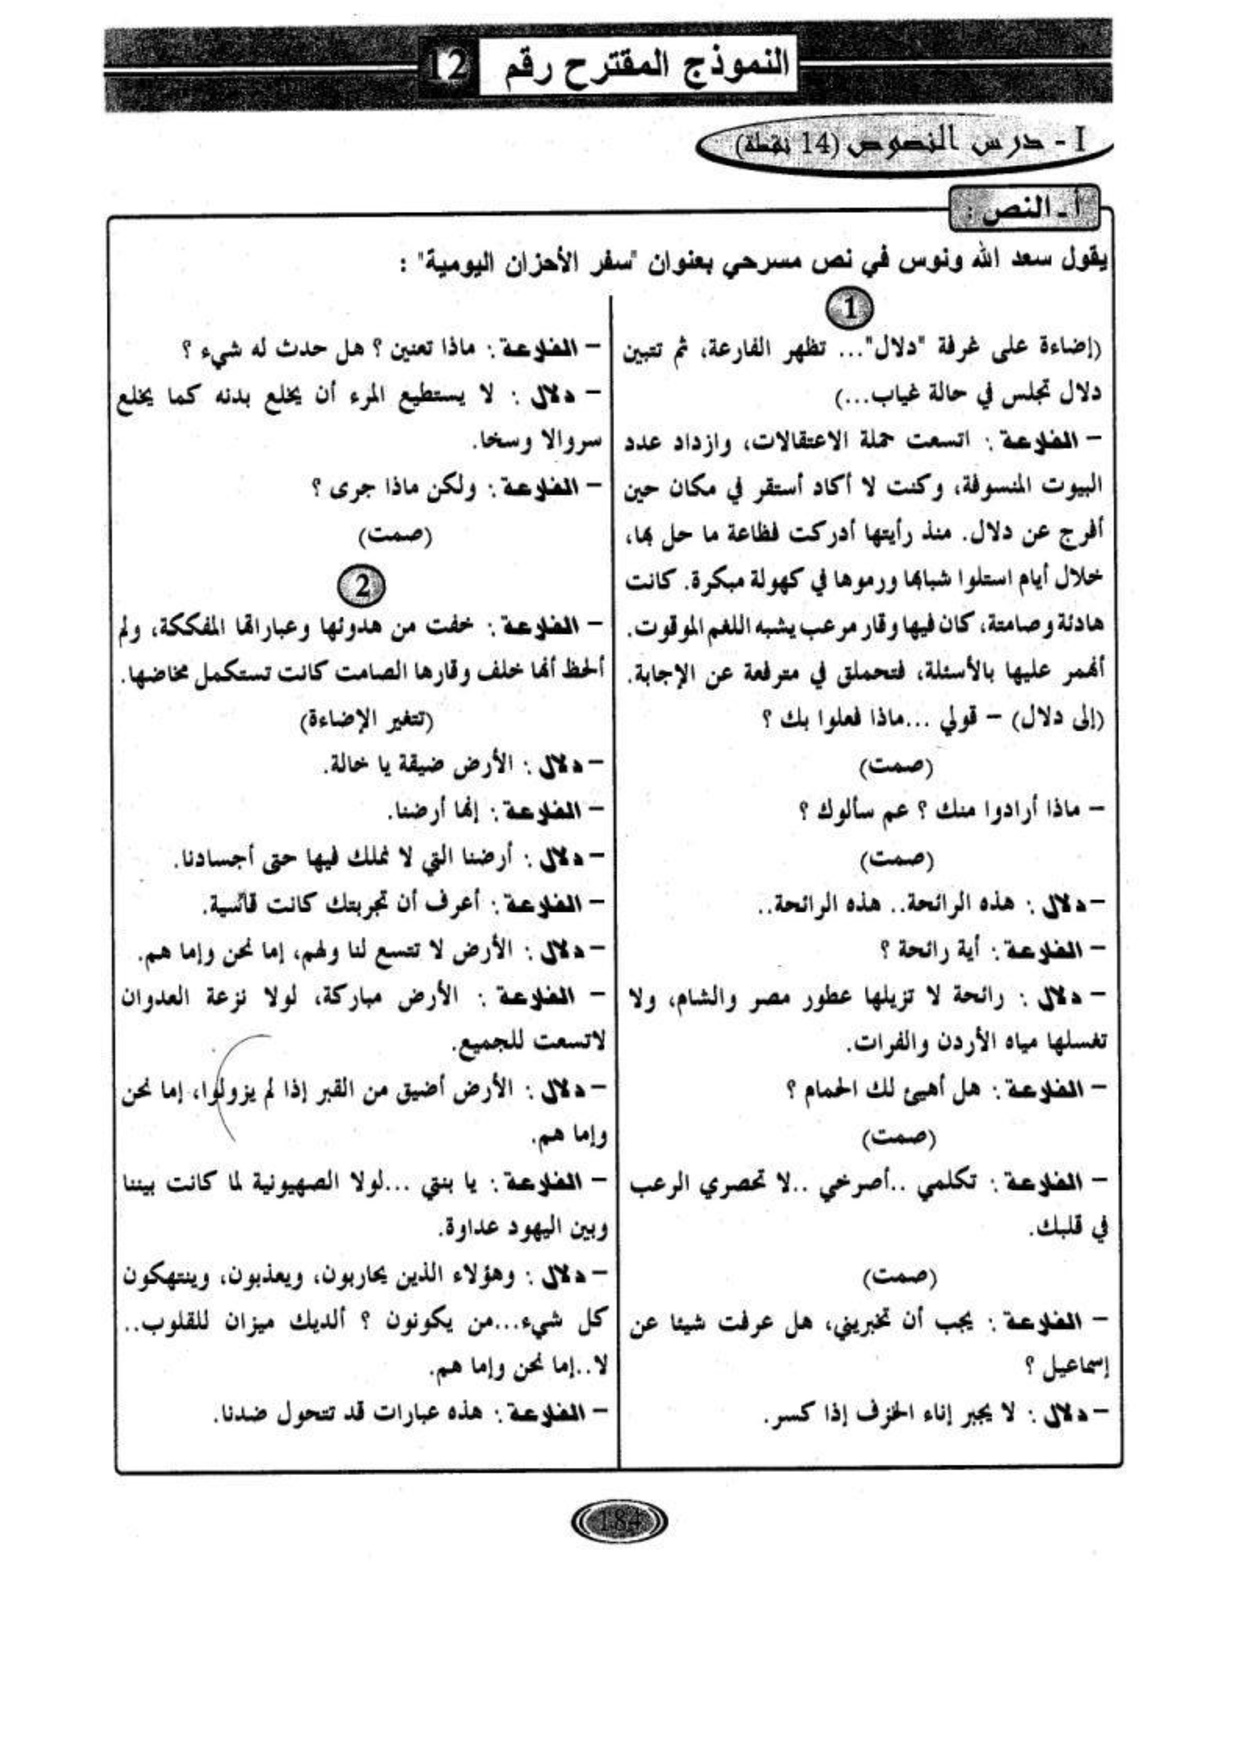 النموذج المقترح رقم 12
I - درس النصوص (14 نقطة)
أ ـ النص :
يقول سعد الله ونوس في نص مسرحي بعنوان "سفر الأحزان اليومية" :
1
(إضاءة على غرفة "دلال"... تظهر الفارعة، ثم تتبين
دلال تجلس في حالة غياب...)
– الفارعة : اتسعت حملة الاعتقالات، وازداد عدد
البيوت المنسوفة، وكنت لا أكاد أستقر في مكان حين
أفرج عن دلال. منذ رأيتها أدركت فظاعة ما حل بها،
خلال أيام استلوا شبابها ورموها في كهولة مبكرة. كانت
هادئة وصامتة، كان فيها وقار مرعب يشبه اللغم الموقوت.
أنهمر عليها بالأسئلة، فتحملق في مترفعة عن الإجابة.
(إلى دلال) – قولي ...ماذا فعلوا بك ؟
(صمت)
– ماذا أرادوا منك ؟ عم سألوك ؟
(صمت)
– دلال : هذه الرائحة.. هذه الرائحة..
– الفارعة : أية رائحة ؟
– دلال : رائحة لا تزيلها عطور مصر والشام، ولا
تغسلها مياه الأردن والفرات.
– الفارعة : هل أهيئ لك الحمام ؟
(صمت)
– الفارعة : تكلمي ..أصرخي ..لا تحصري الرعب
في قلبك.
(صمت)
– الفارعة : يجب أن تخبريني، هل عرفت شيئا عن
إسماعيل ؟
– دلال : لا يجبر إناء الخزف إذا كسر.
– الفارعة : ماذا تعنين ؟ هل حدث له شيء ؟
– دلال : لا يستطيع المرء أن يخلع بدنه كما يخلع
سروالا وسخا.
– الفارعة : ولكن ماذا جرى ؟
(صمت)
2
– الفارعة : خفت من هدوئها وعباراتها المفككة، ولم
ألحظ أنها خلف وقارها الصامت كانت تستكمل مخاضها.
(تتغير الإضاءة)
– دلال : الأرض ضيقة يا خالة.
– الفارعة : إنها أرضنا.
– دلال : أرضنا التي لا نملك فيها حتى أجسادنا.
– الفارعة : أعرف أن تجربتك كانت قاسية.
– دلال : الأرض لا تتسع لنا ولهم، إما نحن وإما هم.
– الفارعة : الأرض مباركة، لولا نزعة العدوان
لاتسعت للجميع.
– دلال : الأرض أضيق من القبر إذا لم يزولوا، إما نحن
وإما هم.
– الفارعة : يا بنتي ...لولا الصهيونية لما كانت بيننا
وبين اليهود عداوة.
– دلال : وهؤلاء الذين يحاربون، ويعذبون، وينتهكون
كل شيء...من يكونون ؟ ألديك ميزان للقلوب..
لا..إما نحن وإما هم.
– الفارعة : هذه عبارات قد تتحول ضدنا.
184